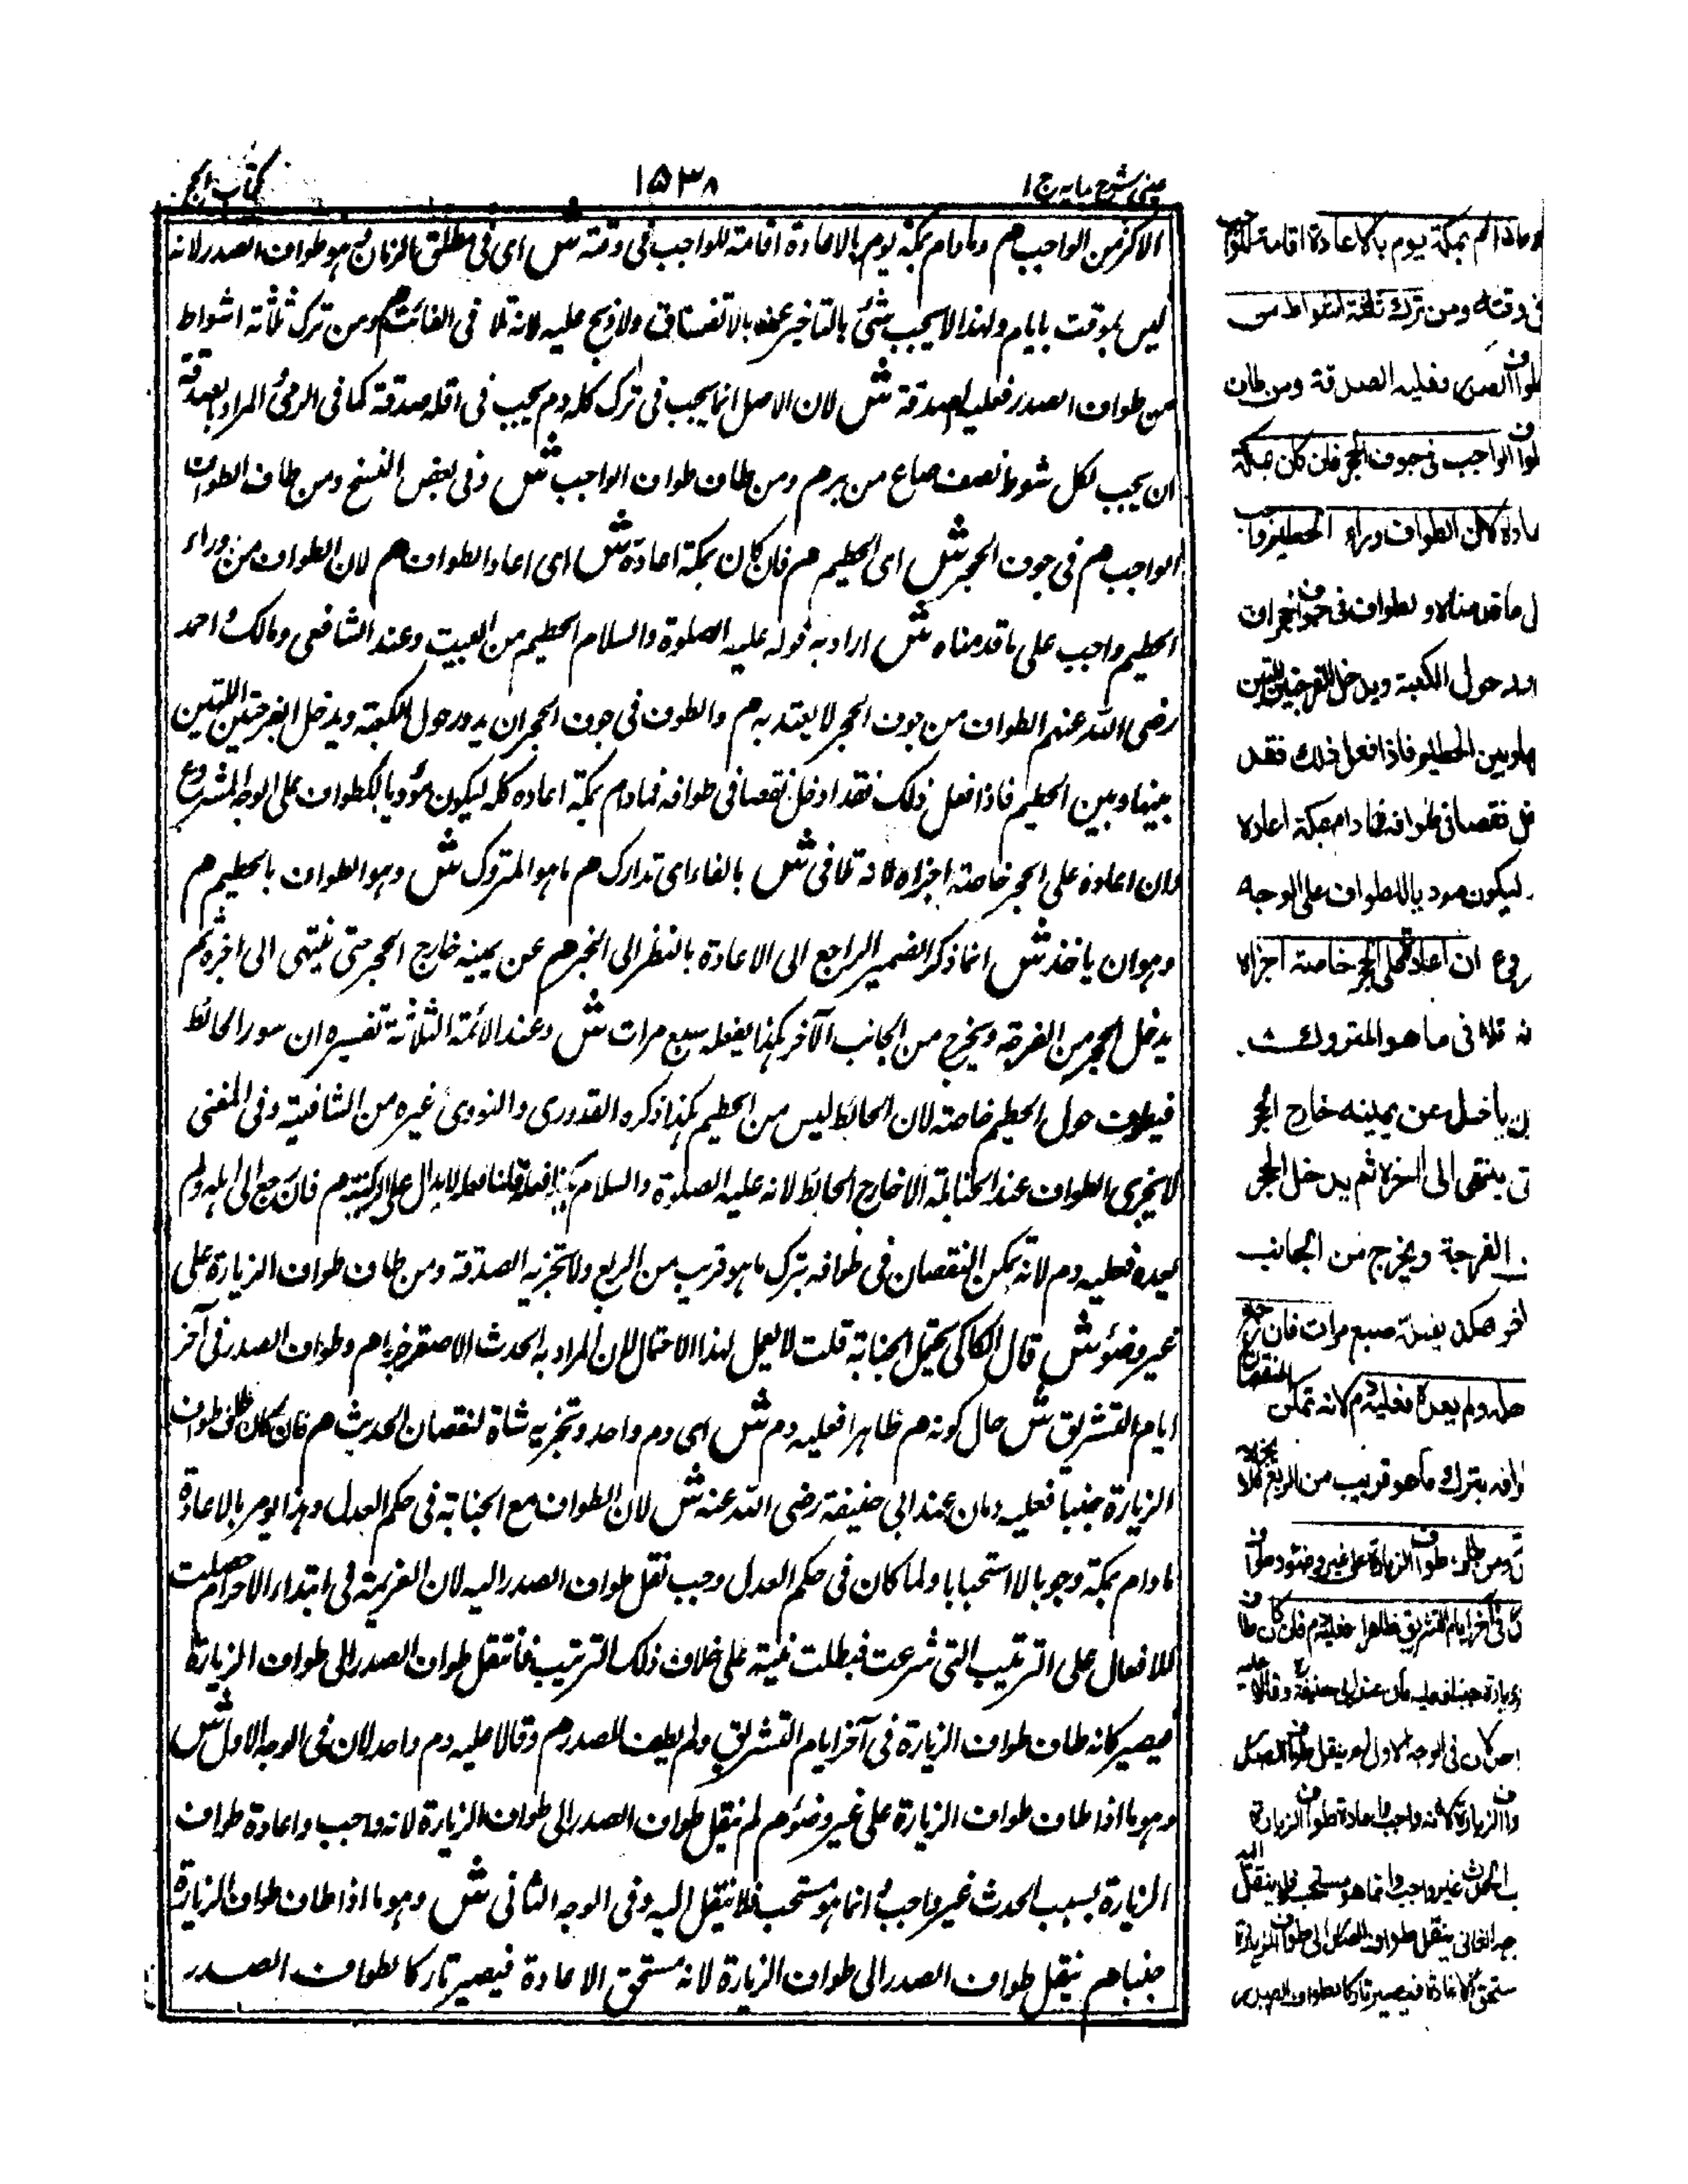 عینی شرح ہدایہ ج ۱
۱۵۳۸
کتاب الحج
الاكثر من الواجب هم وما دام بمكة يومر بالاعادة اقامة للواجب فى وقته ش اى فى مطلق الزمان هو طواف الصدر لانه
ليس بموقت بايام ولهذا لا يجب شئ بالتاخير عنه بالاتفاق ولا ذبح عليه لانه تلافى الفائت هم ومن ترك ثلثة اشواط
من طواف الصدر فعليه صدقة ش لان الاصل انما يجب فى ترك كله دم يجب فى اقله صدقة كما فى الرمى المراد بصدقة
ان يجب لكل شوط نصف صاع من بر هم ومن طاف طواف الواجب ش وفى بعض النسخ ومن طاف الطواف
الواجب هم فى جوف الحجر ش اى الحطيم هم فان كان بمكة اعاده ش اى اعاد الطواف هم لان الطواف من وراء
الحطيم واجب على ما قدمناه ش اراد به قوله عليه الصلوة والسلام الحطيم من البيت وعند الشافعى ومالك واحمد
رضى الله عنهم الطواف من جوف الحجر لا يعتد به هم والطوف فى جوف الحجر ان يدور حول الكعبة ويدخل الفرجتين اللتين
بينها وبين الحطيم فاذا فعل ذلك فقد ادخل نقصا فى طوافه فما دام بمكة اعاده كله ليكون مؤديا للطواف على الوجه المشروع
وان اعاده على الحجر خاصة اجزاه لانه تلافى ش بالفاء اى تدارك هم ما هو المتروك ش وهو الطواف بالحطيم هم
وهو ان ياخذ ش انما ذكر الضمير الراجع الى الاعادة بالنظر الى الخبر هم عن يمينه خارج الحجر حتى ينتهى الى اخره ثم
يدخل الحجر من الفرجة ويخرج من الجانب الآخر هكذا يفعله سبع مرات ش وعند الائمة الثلاثة تفسيره ان سور الحائط
فيطوف حول الحطيم خاصة لان الحائط ليس من الحطيم هكذا ذكره القدورى والنووى غيره من الشافعية وفى المغنى
لا يجزى الطواف عند الحنابلة الا خارج الحائط لانه عليه الصلوة والسلام هكذا فعله قلنا فعله لا يدل على الركنية هم فان رجع الى اهله ولم
يعده فعليه دم لانه تمكن النقصان فى طوافه بترك ما هو قريب من الربع ولا تجزيه الصدقة ومن طاف طواف الزيارة على
غير وضوء ش قال الكاكى يحتمل الجنابة قلت لا يعمل لهذا الاحتمال لان المراد به الحدث الاصغر هم وطواف الصدر فى آخر
ايام التشريق ش حال كونه هم طاهرا فعليه دم ش اى دم واحد وتجزيه شاة لنقصان الحدث هم فان كان طاف طواف
الزيارة جنبا فعليه دمان عند ابى حنيفة رضى الله عنه ش لان الطواف مع الجنابة فى حكم العدل وبهذا يومر بالاعادة
ما دام بمكة وجوبا لا استحبابا ولما كان فى حكم العدل وجب نقل طواف الصدر اليه لان العزيمة فى ابتداء الاحرام حصلت
للافعال على الترتيب التى شرعت فبطلت نيته على خلاف ذلك الترتيب فانتقل طواف الصدر الى طواف الزيارة
فيصير كانه طاف طواف الزيارة فى آخر ايام التشريق ولم يطف للصدر هم وقالا عليه دم واحد لان فى الوجه الاول ش
وهو ما اذا طاف طواف الزيارة على غير وضوء هم لم ينقل طواف الصدر الى طواف الزيارة لانه واجب واعادة طواف
الزيارة بسبب الحدث غير واجب وانما هو مستحب فلا ينتقل اليه وفى الوجه الثانى ش وهو ما اذا طاف طواف الزيارة
جنبا هم ينقل طواف الصدر الى طواف الزيارة لانه مستحق الاعادة فيصير تاركا لطواف الصدر
وما دام بمكة يومر بالاعادة اقامة للواجب
فى وقته ومن ترك ثلثة اشواط من
طواف الصدر فعليه الصدقة ومن طاف
طواف الواجب فى جوف الحجر فان كان بمكة
عاده لان الطواف وراء الحطيم واجب
ل ما قدمناه والطواف فى جوف الحجر ان
دور حول الكعبة ويدخل الفرجتين اللتين
بينها وبين الحطيم فاذا فعل ذلك فقد
خل نقصا فى طوافه فما دام بمكة اعاده
ليكون موديا للطواف على الوجه
روع ان اعاد على الحجر خاصة اجزاه
نه تلافى ما هو المتروك
ن ياخذ عن يمينه خارج الحجر
تى ينتهى الى اخره ثم يدخل الحجر
الفرجة ويخرج من الجانب
اخر هكذا يفعله سبع مرات فان رجع
هله ولم يعده فعليه دم لانه تمكن النقصان
وافه بترك ما هو قريب من الربع
ومن طاف طواف الزيارة على غير وضوء وطواف
فى آخر ايام التشريق طاهرا فعليه دم فان كان طاف
زيارة جنبا فعليه دمان عند ابى حنيفة وقالا عليه
احد لان فى الوجه الاول لم ينقل طواف الصدر
واف الزيارة لانه واجب واعادة طواف الزيارة
ب الحدث غير واجب وانما هو مستحب فلا ينتقل اليه
جه الثانى ينقل طواف الصدر الى طواف الزيارة
ستحق الاعادة فيصير تاركا لطواف الصدر